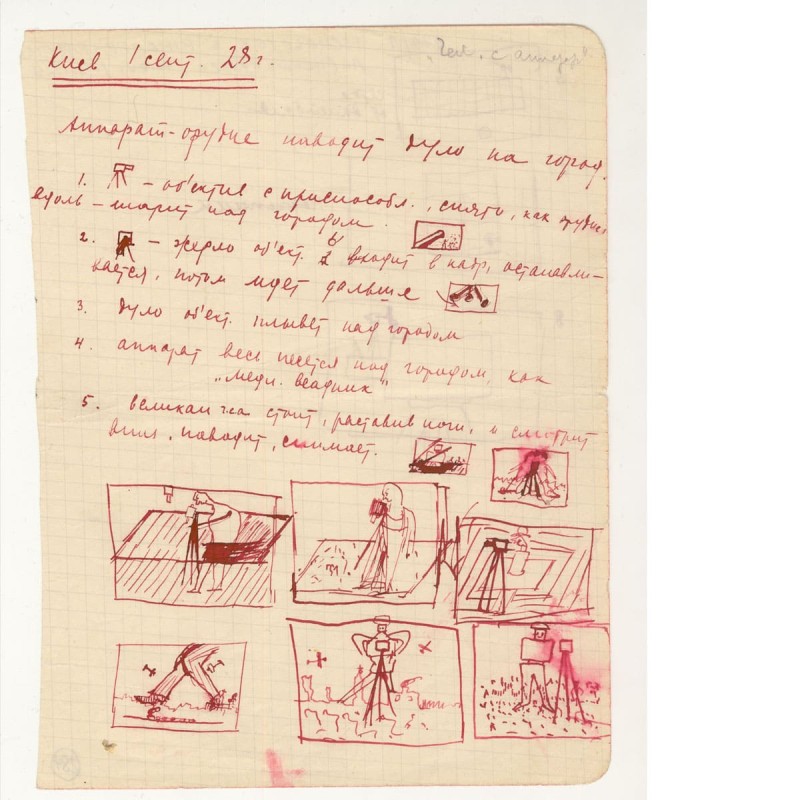 Киев 1 сент. 28 г.
„Чел. с аппар."
Аппарат-орудие наводит дуло на город.
1. — об'ектив с приспособл., снято, как орудие
вдоль — шарит над городом.
2. — жерло об'ект. входит в кадр, останавли-
вается, потом идет дальше
3. дуло об'ект. плывет над городом
4. аппарат весь несется над городом, как
„медн. всадник"
5. великан стоит, раставив ноги, и смотрит
вниз, наводит, снимает.